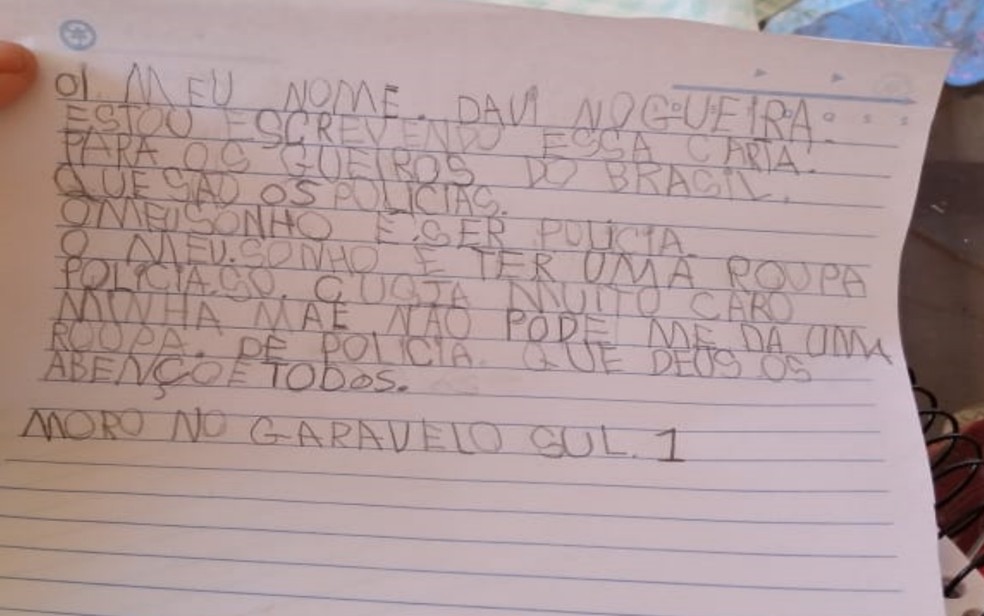 OI MEU NOME. DAVI NOGUEIRA.
ESTOU ESCREVENDO ESSA CARTA.
PARA OS GUEIROS DO BRASIL.
QUE SÃO OS POLICIAS.
O MEU SONHO E SER POLICIA
O MEU SONHO E TER UMA ROUPA
POLICIA SO. CUSTA MUITO CARO
MINHA MÃE NÃO PODE ME DA UMA
ROUPA. DE POLICIA. QUE DEUS OS
ABENÇOE TODOS.
MORO NO GARAVELO SUL. 1